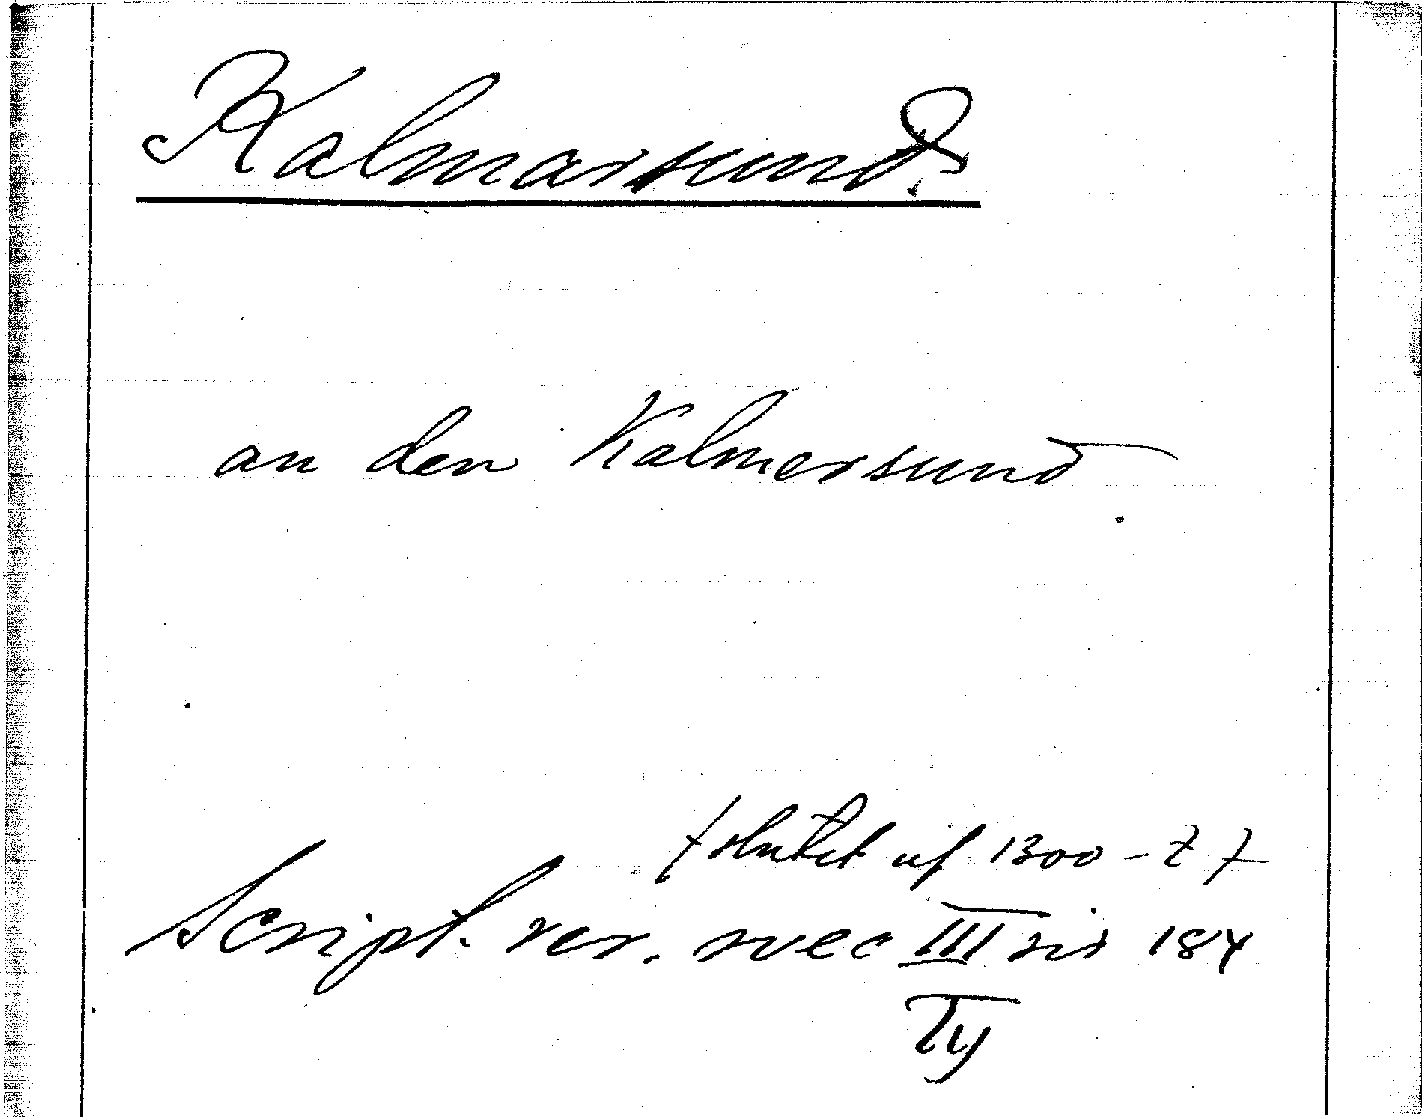 Kalmarsund.
an den Kalmersund
(slutet af 1300-t)
Script. rer. svec III sid 184
Ty